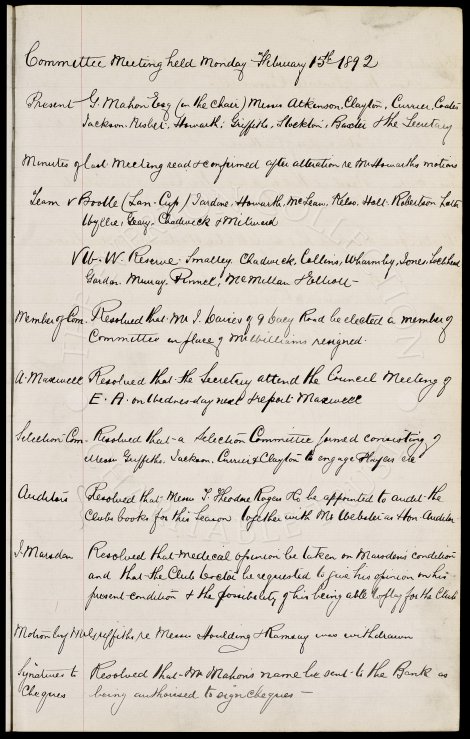 Committee Meeting held Monday February 15th 1892
Present G. Mahon Esq (in the chair) Messrs Atkinson, Clayton, Currier, Coates
Jackson, Nisbet, Howarth, Griffiths, Stockton, Baxter & the Secretary
Minutes of last Meeting read & confirmed after alteration re Mr Howarths motions
Team v Bootle (Lan. Cup) Jardine, Howarth, McLean, Kelso, Holt, Robertson, Latta
Wyllie, Geary, Chadwick & Milward
v W. W. Reserve. Smalley, Chadwick, Collins, Wharmby, Jones, Lochhead
Gordon, Murray, Pinnel, McMillan & Elliott
Member of Com. Resolved that Mr J. Davies of 9 Dacy Road be elected a member of
Committee in place of Mr Williams resigned.
A. Maxwell Resolved that the Secretary attend the Council Meeting of
E. A. on Wednesday next & report Maxwell
Selection Com. Resolved that a Selection Committee formed consisting of
Messrs Griffiths, Jackson, Currier & Clayton to engage Players etc
Auditors Resolved that Messrs T. Theodore Rogers be appointed to audit the
Clubs books for this season together with Mr Webster as Hon Auditor
J. Marsden Resolved that Medecal opinion be taken on Marsden's condition
and that the Club Doctor be requested to give his opinion on his
present condition & the possibility of his being able to play for the Club
Motion by Mr Griffiths re Messrs Houlding & Ramsay was withdrawn
Signatures to Resolved that Mr Mahon's name be sent to the Bank as
Cheques being authorised to sign cheques